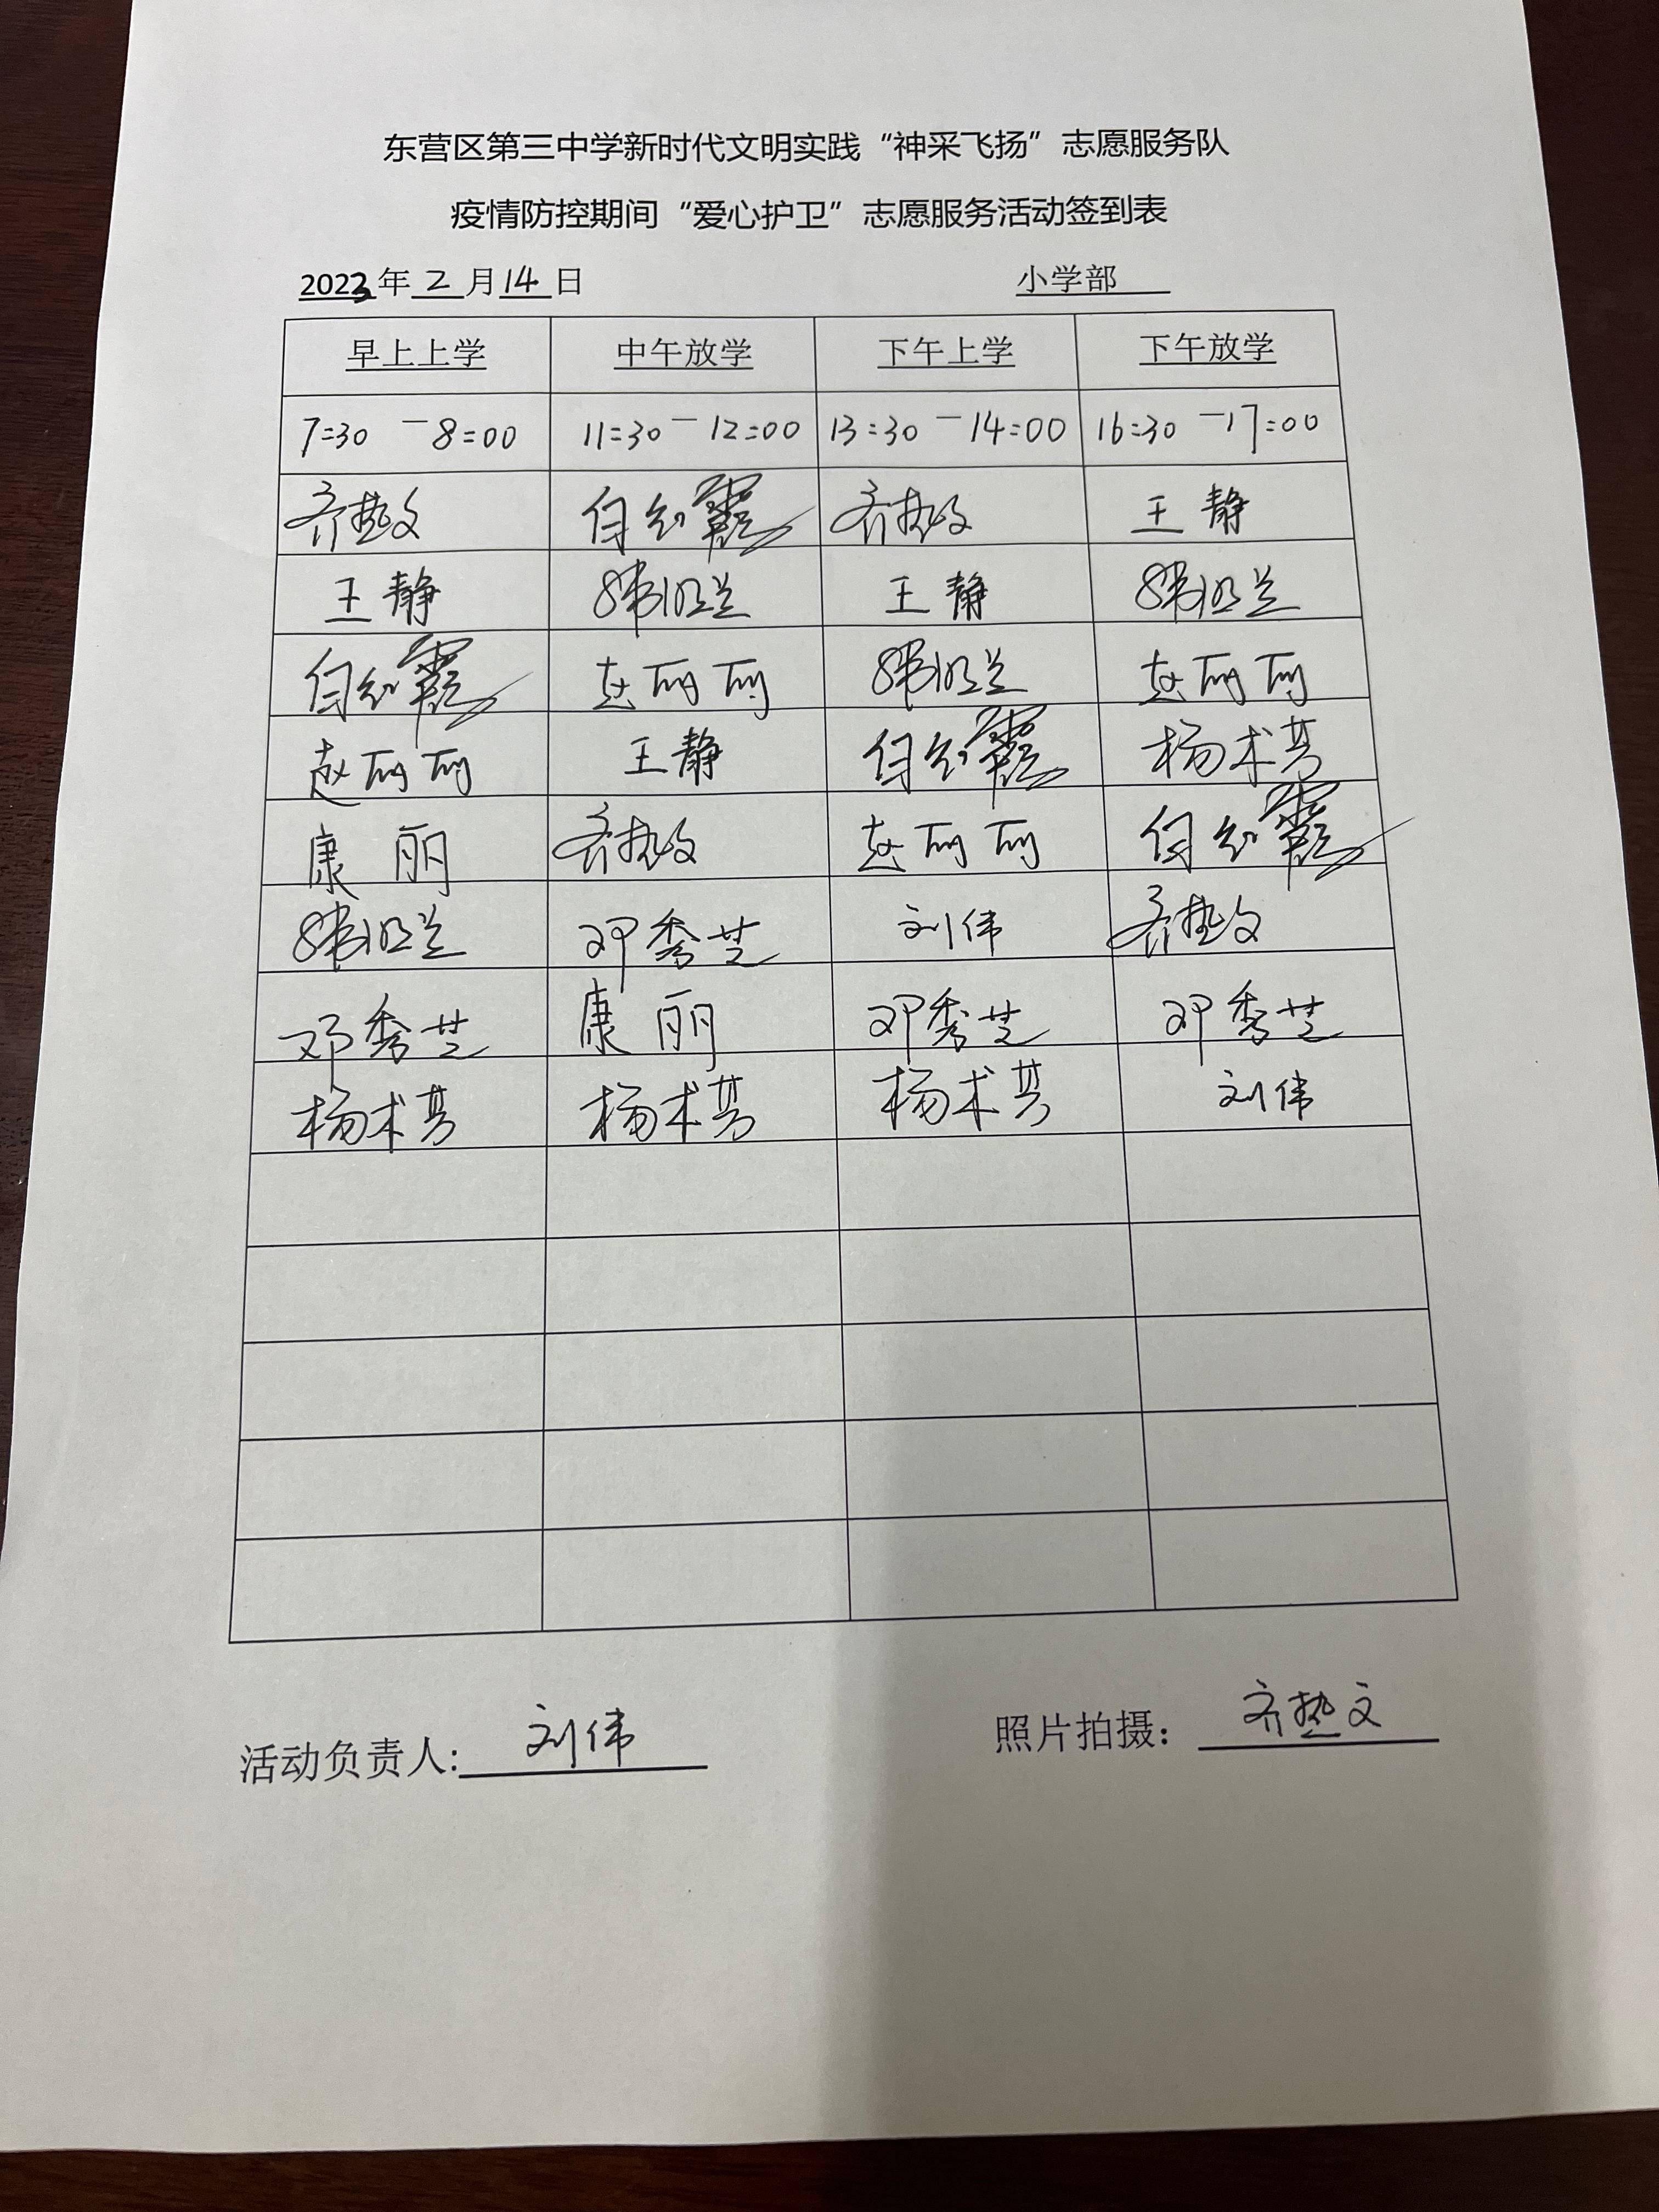 东营区第三中学新时代文明实践“神采飞扬”志愿服务队
疫情防控期间“爱心护卫”志愿服务活动签到表
2023年 2 月 14 日 小学部
早上上学 中午放学 下午上学 下午放学
7:30 — 8:00 11:30 — 12:00 13:30 — 14:00 16:30 — 17:00
齐文 齐 王静
王静 王静
赵丽丽 赵丽丽
赵丽丽 王静 杨术芳
康丽 齐 赵丽丽
邓秀芝 刘伟 齐文
邓秀芝 康丽 邓秀芝 邓秀芝
杨术芳 杨术芳 杨术芳 刘伟
活动负责人: 刘伟 照片拍摄: 齐文